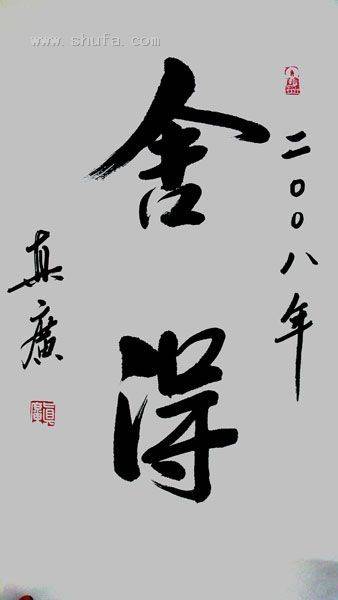 www.shufa.com
二〇〇八年
舍得
真廣